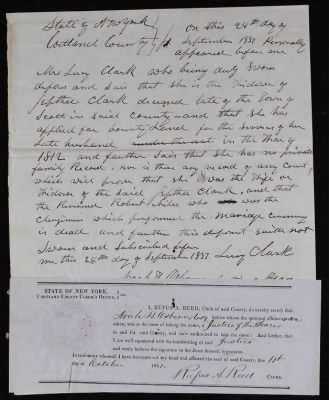 State of New York
Cortland County } ss
On this 24th day of
September 1851 Personally
appeared before me
Mrs Lucy Clark who being duly Sworn
deposes and Sais that She is the Widow of
Jepthae Clark deceased late of the Town of
Scott in said County and that She has
applied for bounty Land for the Services of her
Late husband in the War of
1812 and further Sais that She has no private
family Record, nor is there any record of any court
which will prove that She was the Wife or
Widow of the Said Jepthae Clark, and that
the Reverend Robert who was the
Clergiman which performed the marriage ceremony
is dead and further this deponent Saith not
Sworn and Subscribed before
me this 24th day of September 1851 Lucy Clark
STATE OF NEW YORK,
CORTLAND COUNTY CLERK'S OFFICE, } ss.
I, RUFUS A. REED, Clerk of said County, do hereby certify that
Noah H. Osborn Esq before whom the annexed
taken, was at the time of taking the same, a Justice of the Peace
in and for said County, and duly authorized to take the same: And further, that
I am well acquainted with the handwriting of said Justice
and verily believe the signature to the Jurat thereof, is genuine.
In testimony whereof, I have hereunto set my hand and affixed the seal of said County, this 1st
day of October 1851.
Rufus A. Reed CLERK.